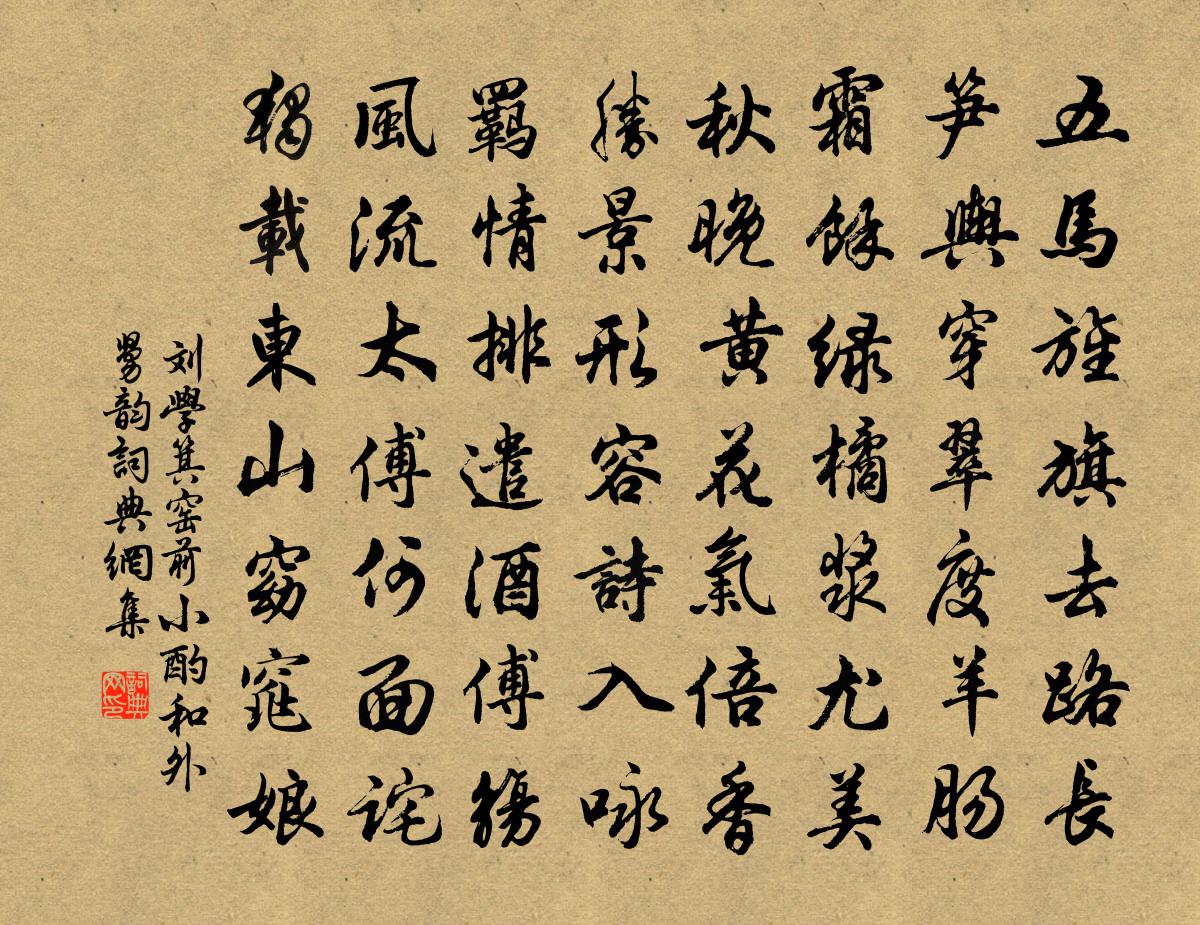 五馬旌旗去路長
笋輿穿翠度羊肠
霜餘緑橘漿尤美
秋晚黄花氣倍香
勝景形容詩入咏
羈情排遣酒傅觴
風流太傅何面詫
獨載東山窈窕娘
刘學箕窑前小酌和外
舅韵詞典網集
詞典网印